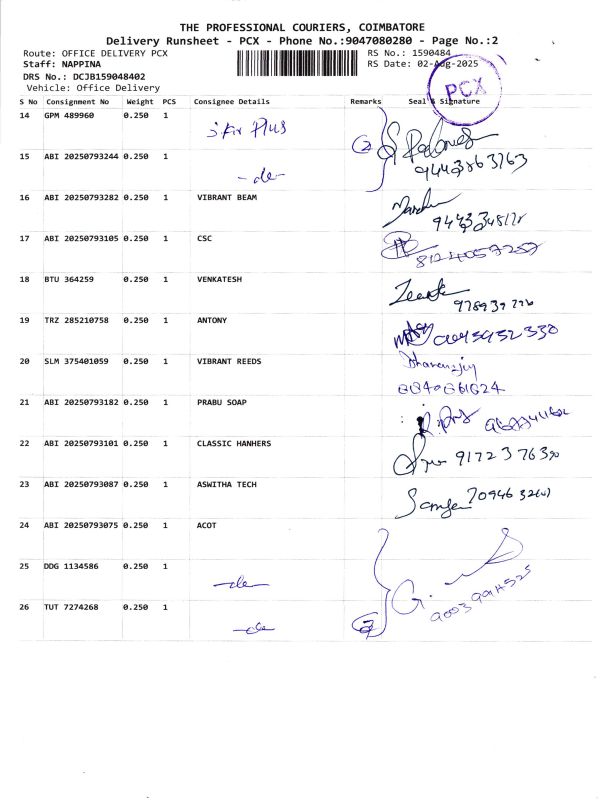 THE PROFESSIONAL COURIERS, COIMBATORE
Delivery Runsheet - PCX - Phone No.:9047080280 - Page No.:2
Route: OFFICE DELIVERY PCX RS No.: 1590484
Staff: NAPPINA RS Date: 02-Aug-2025
DRS No.: DCJB159048402
Vehicle: Office Delivery
PCX
S No Consignment No Weight PCS Consignee Details Remarks Seal & Signature
14 GPM 489960 0.250 1 Plus
15 ABI 20250793244 0.250 1 -do- 9443863763
16 ABI 20250793282 0.250 1 VIBRANT BEAM
17 ABI 20250793105 0.250 1 CSC 8124057257
18 BTU 364259 0.250 1 VENKATESH
19 TRZ 285210758 0.250 1 ANTONY
20 SLM 375401059 0.250 1 VIBRANT REEDS
21 ABI 20250793182 0.250 1 PRABU SOAP
22 ABI 20250793101 0.250 1 CLASSIC HANHERS
23 ABI 20250793087 0.250 1 ASWITHA TECH
24 ABI 20250793075 0.250 1 ACOT
25 DDG 1134586 0.250 1 -do-
26 TUT 7274268 0.250 1 -do-